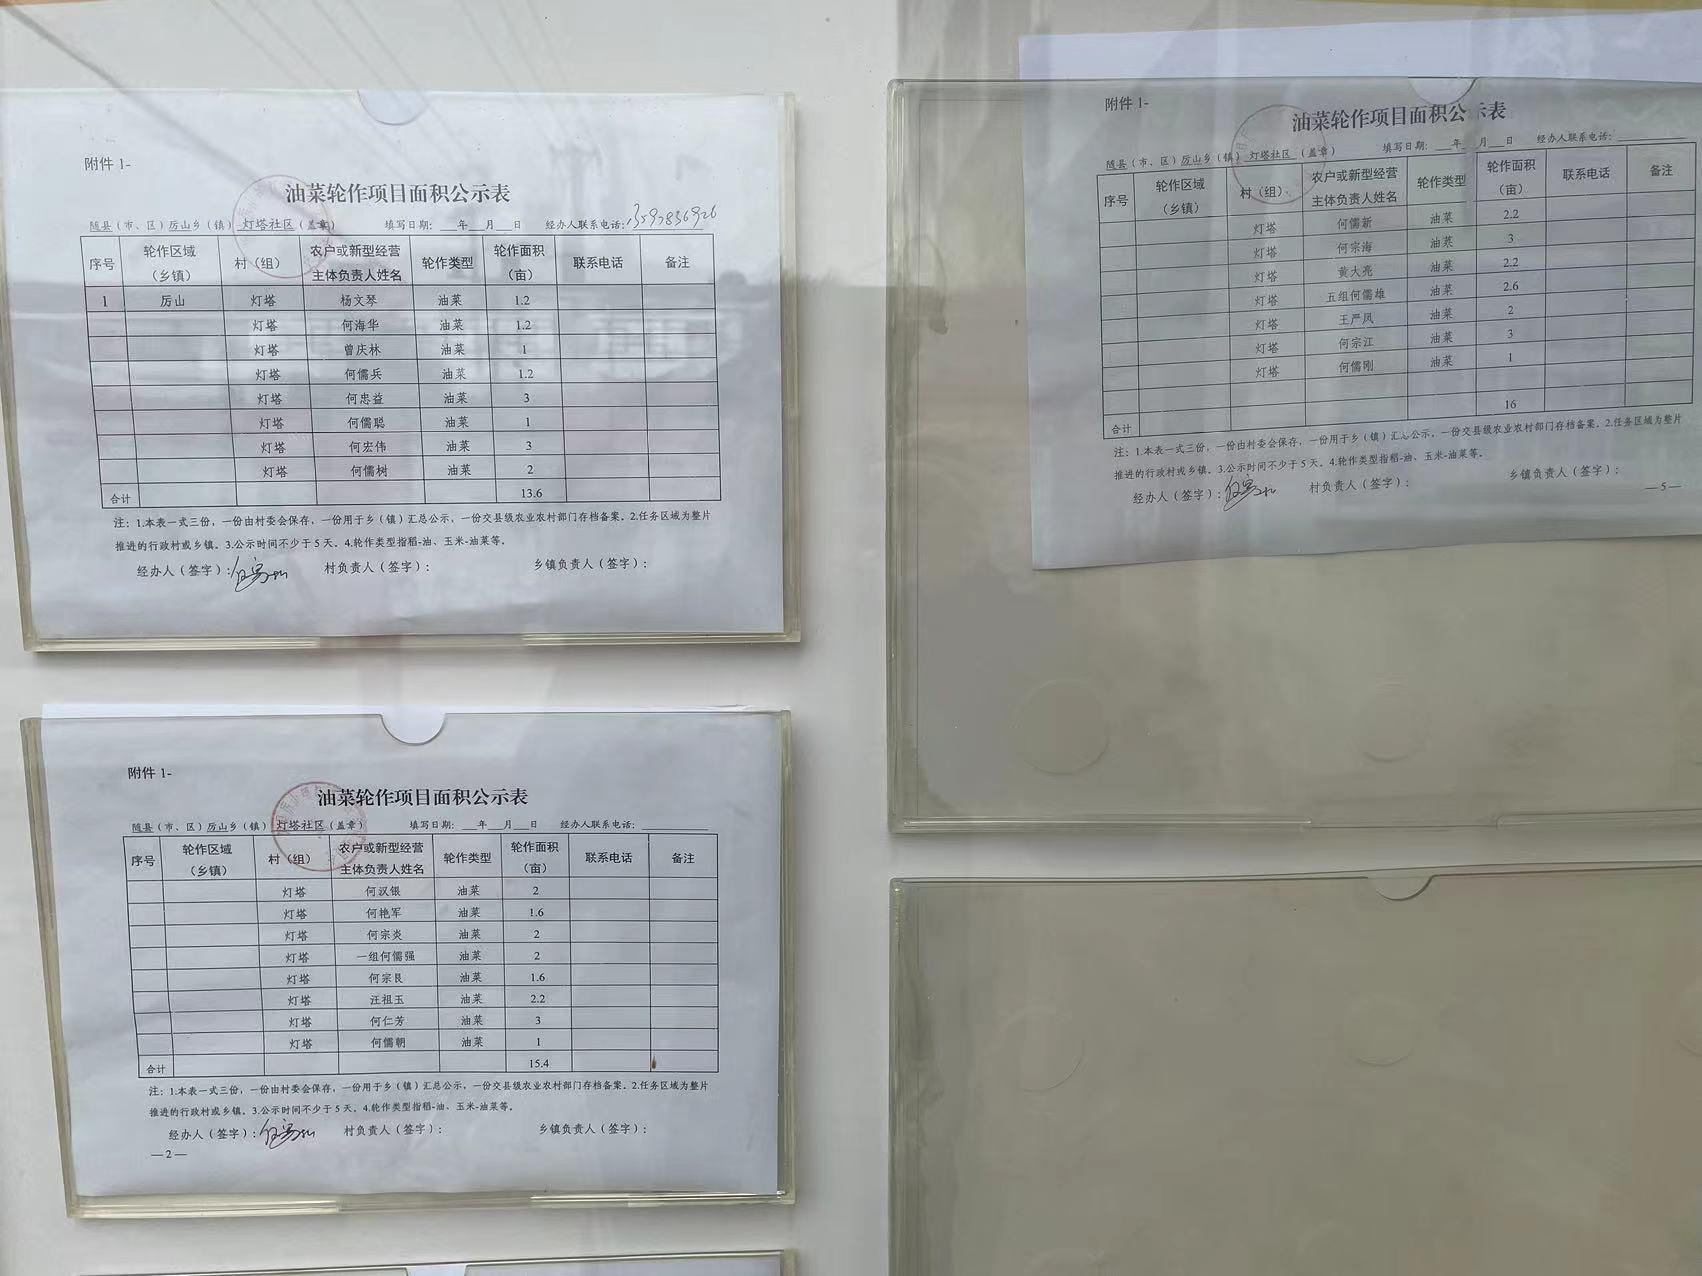 附件 1-
油菜轮作项目面积公示表
随县（市、区）厉山乡（镇）灯塔社区（盖章） 填写日期：___年___月___日 经办人联系电话：13597836926
序号 轮作区域（乡镇） 村（组） 农户或新型经营主体负责人姓名 轮作类型 轮作面积（亩） 联系电话 备注
1 厉山 灯塔 杨文琴 油菜 1.2
灯塔 何海华 油菜 1.2
灯塔 曾庆林 油菜 1
灯塔 何儒兵 油菜 1.2
灯塔 何忠益 油菜 3
灯塔 何儒聪 油菜 1
灯塔 何宏伟 油菜 3
灯塔 何儒树 油菜 2
合计 13.6
注：1.本表一式三份，一份由村委会保存，一份用于乡（镇）汇总公示，一份交县级农业农村部门存档备案。2.任务区域为整片
推进的行政村或乡镇。3.公示时间不少于5天。4.轮作类型指稻-油、玉米-油菜等。
经办人（签字）： 村负责人（签字）： 乡镇负责人（签字）：
附件 1-
油菜轮作项目面积公示表
随县（市、区）厉山乡（镇）灯塔社区（盖章） 填写日期：___年___月___日 经办人联系电话：
序号 轮作区域（乡镇） 村（组） 农户或新型经营主体负责人姓名 轮作类型 轮作面积（亩） 联系电话 备注
灯塔 何汉银 油菜 2
灯塔 何艳军 油菜 1.6
灯塔 何宗炎 油菜 2
灯塔 一组何儒强 油菜 2
灯塔 何宗艮 油菜 1.6
灯塔 汪祖玉 油菜 2.2
灯塔 何仁芳 油菜 3
灯塔 何儒朝 油菜 1
合计 15.4
注：1.本表一式三份，一份由村委会保存，一份用于乡（镇）汇总公示，一份交县级农业农村部门存档备案。2.任务区域为整片
推进的行政村或乡镇。3.公示时间不少于5天。4.轮作类型指稻-油、玉米-油菜等。
经办人（签字）： 村负责人（签字）： 乡镇负责人（签字）：
—2—
附件 1-
油菜轮作项目面积公示表
随县（市、区）厉山乡（镇）灯塔社区（盖章） 填写日期：___年___月___日 经办人联系电话：
序号 轮作区域（乡镇） 村（组） 农户或新型经营主体负责人姓名 轮作类型 轮作面积（亩） 联系电话 备注
灯塔 何儒新 油菜 2.2
灯塔 何宗海 油菜 3
灯塔 黄大亮 油菜 2.2
灯塔 五组何儒雄 油菜 2.6
灯塔 王严凤 油菜 2
灯塔 何宗江 油菜 3
灯塔 何儒刚 油菜 1
合计 16
注：1.本表一式三份，一份由村委会保存，一份用于乡（镇）汇总公示，一份交县级农业农村部门存档备案。2.任务区域为整片
推进的行政村或乡镇。3.公示时间不少于5天。4.轮作类型指稻-油、玉米-油菜等。
经办人（签字）： 村负责人（签字）： 乡镇负责人（签字）：
—5—